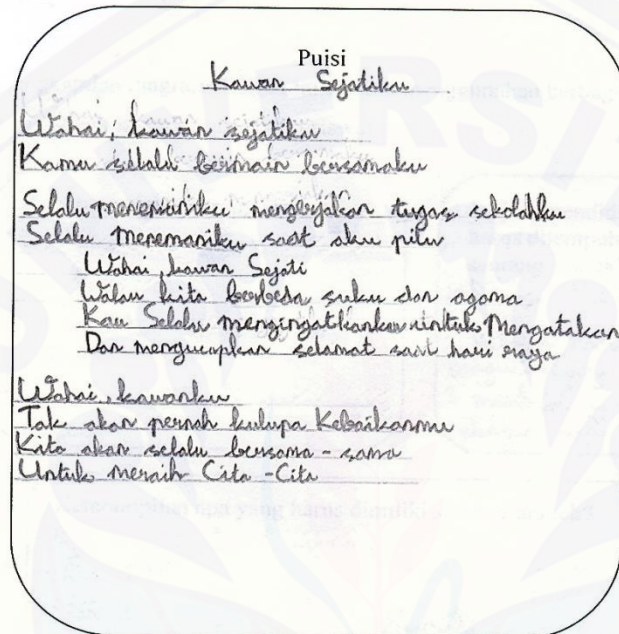 Puisi
Kawan Sejatiku
Wahai, kawan sejatiku
Kamu selalu bermain bersamaku
Selalu menemaniku mengerjakan tugas sekolahku
Selalu menemaniku saat aku pilu
Wahai, kawan Sejati
Walau kita berbeda suku dan agama
Kau Selalu mengingatkanku untuk Mengatakan
Dan mengucapkan selamat saat hari raya
Wahai, kawanku
Tak akan pernah kulupa Kebaikanmu
Kita akan selalu bersama - sama
Untuk meraih Cita - Cita